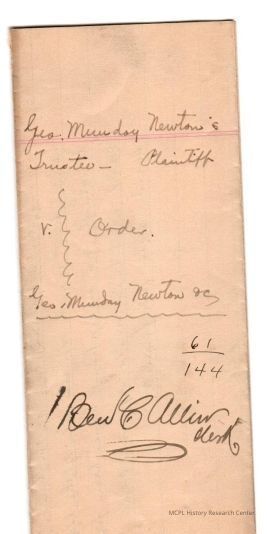 Geo. Munday Newton's
Trustee - Plaintiff
v. Order.
Geo. Munday Newton &c
61
144
Ben C Allin
clerk
MCPL History Research Center